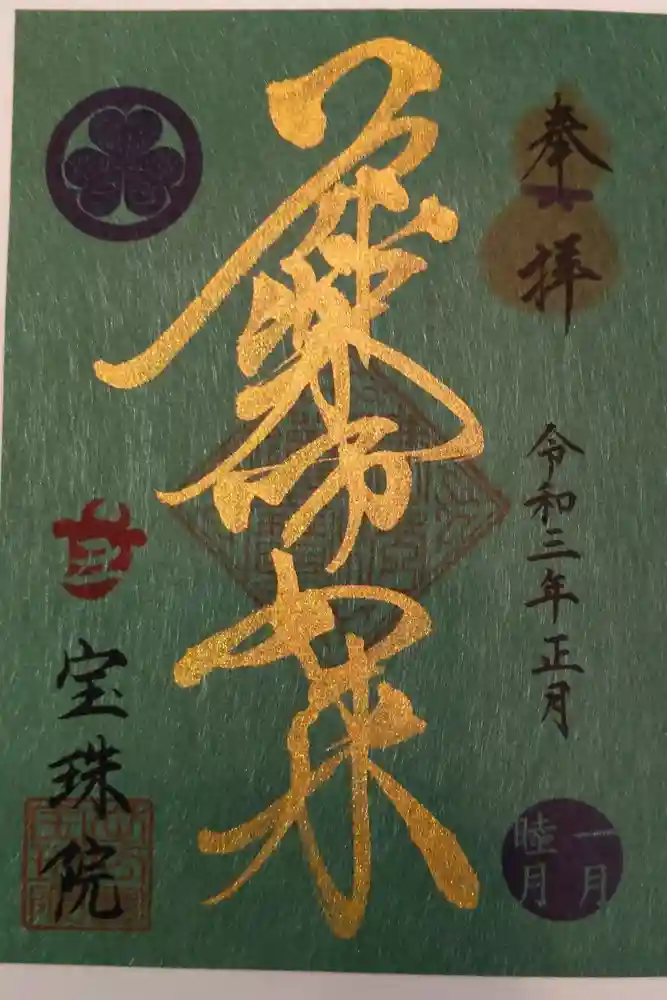 奉拝
令和三年正月
一月
睦月
薬師如来
宝珠院